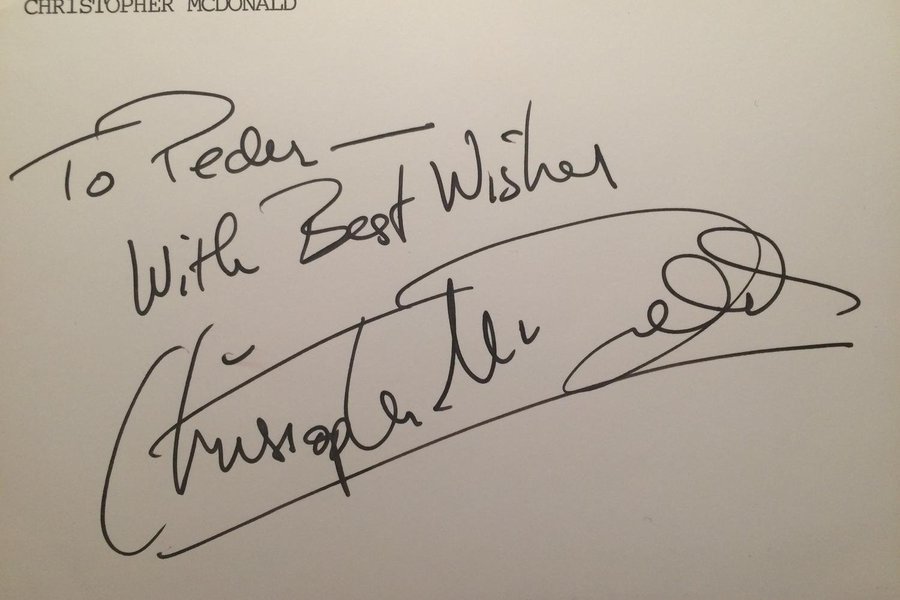 CHRISTOPHER MCDONALD
To Peder —
With Best Wishes
Christopher McDonald